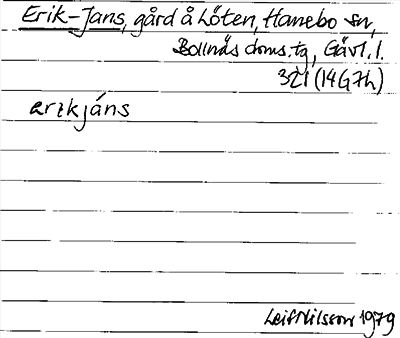 Erik-Jans, gård å Löten, Hanebo sn,
Bollnäs doms. tg, Gävl. l.
321 (14G7h)
ærɩkjáns
Leif Nilsson 1979